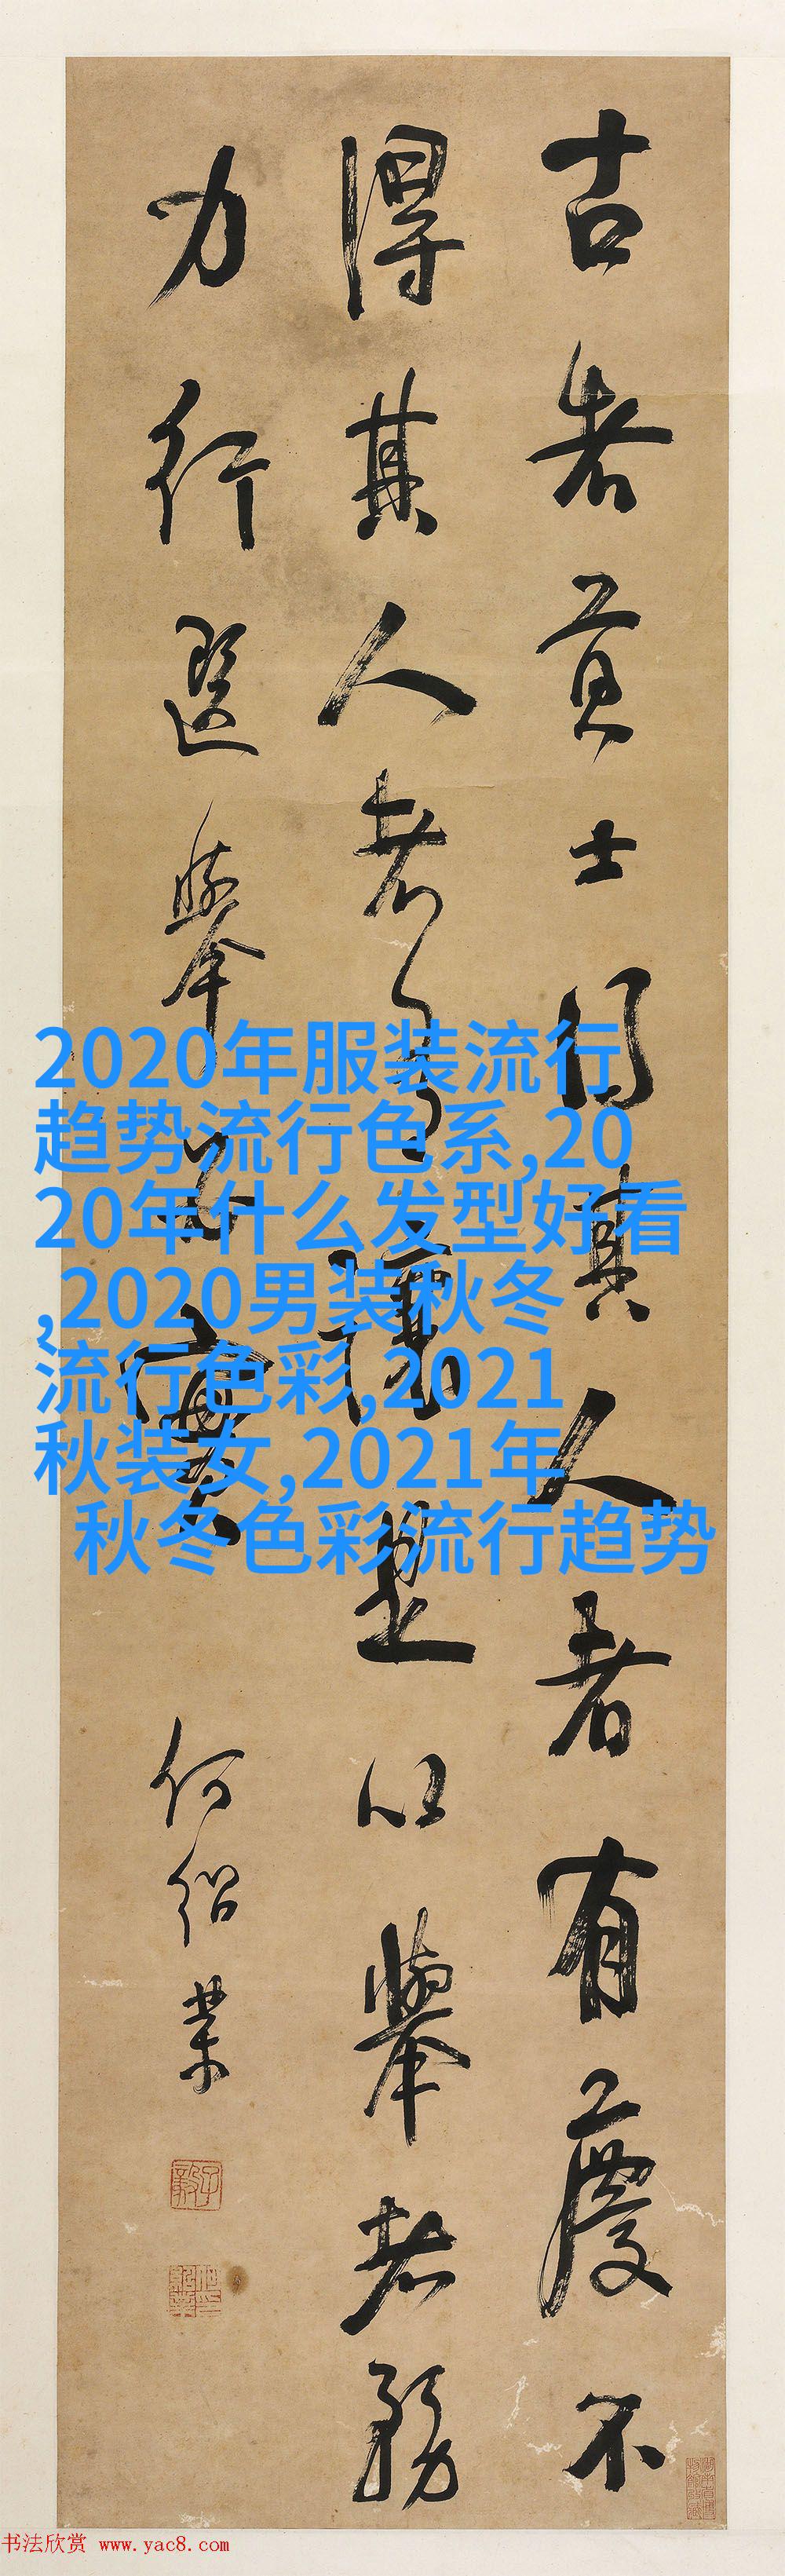 古者貢士得其人者有慶不
得其人者有讓是以舉者務
力行選舉實
何紹業
2020年服装流行
趋势流行色系,20
20年什么发型好看
,2020男装秋冬
流行色彩,2021
秋装女,2021年
秋冬色彩流行趋势
书法欣赏 www.yac8.com